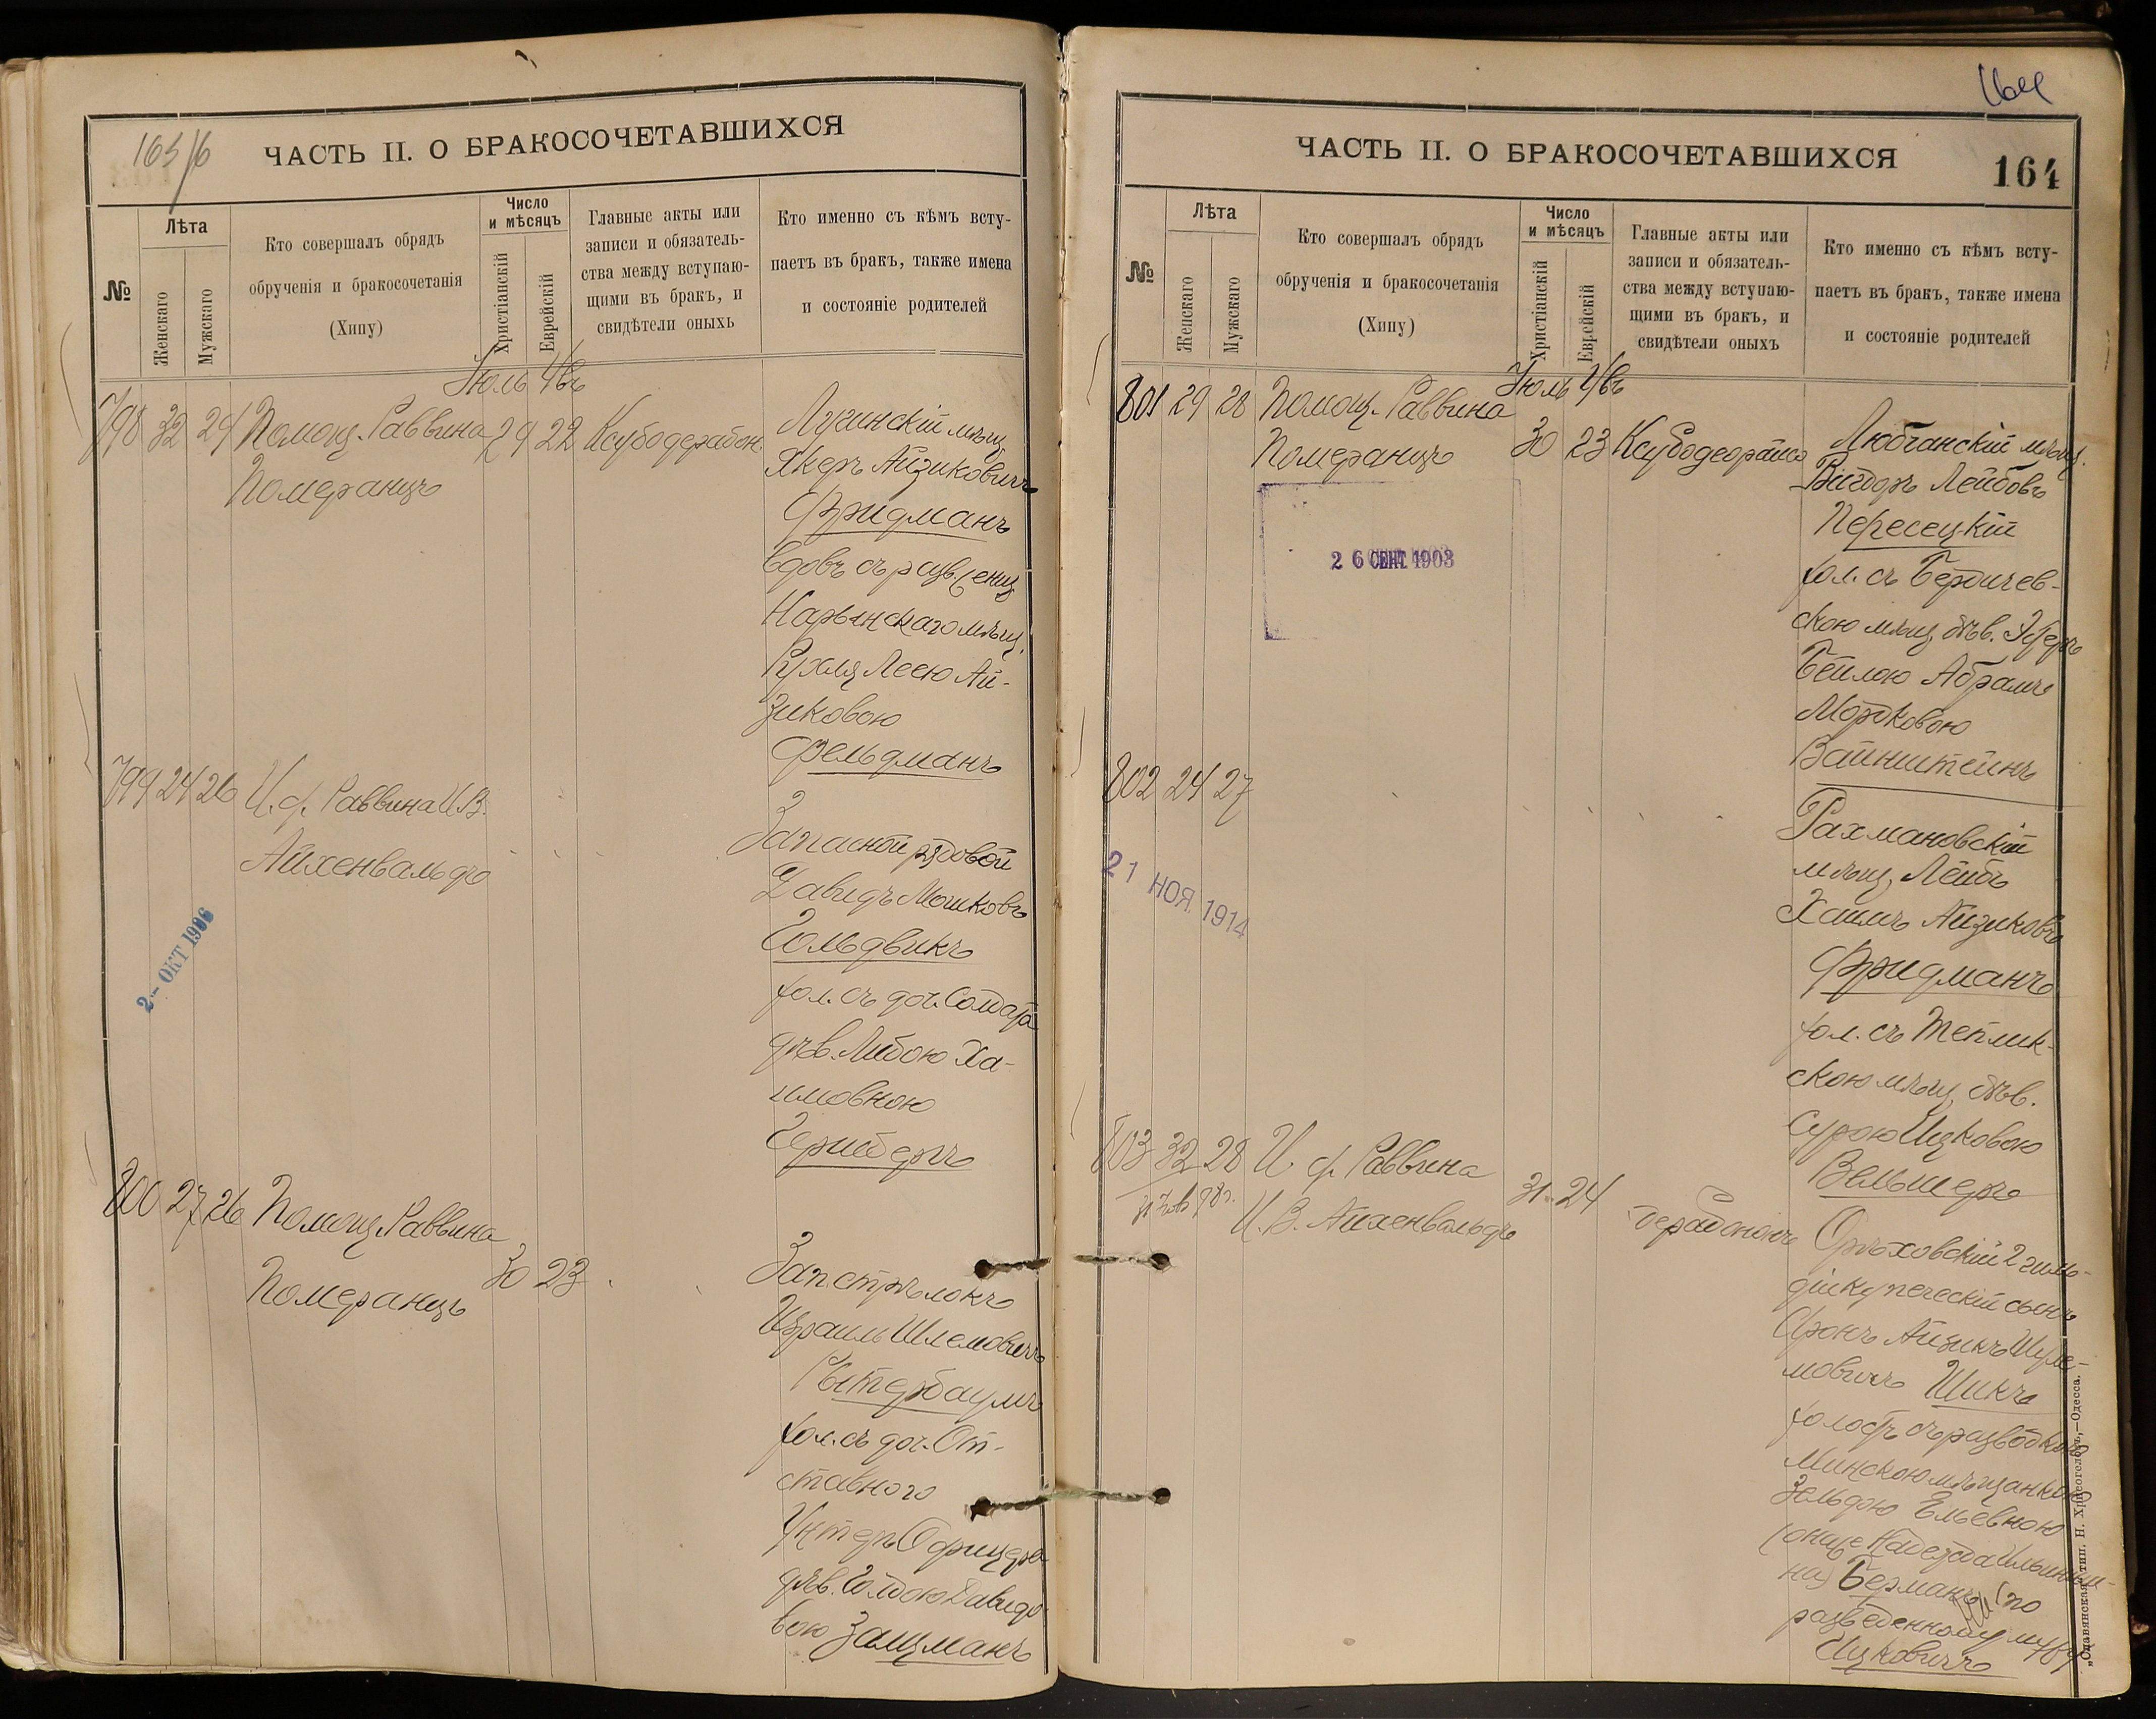 163/б
ЧАСТЬ II. О БРАКОСОЧЕТАВШИХСЯ
№
Лѣта
Женскаго
Мужскаго
Кто совершалъ обрядъ
обрученія и бракосочетанія
(Хипу)
Число
и мѣсяцъ
Христіанскій
Еврейскій
Главные акты или
записи и обязатель-
ства между вступаю-
щими въ бракъ, и
свидѣтели оныхъ
Кто именно съ кѣмъ всту-
паетъ въ бракъ, также имена
и состояніе родителей
Іюль Увъ
798 32 24 Помощ. Раввина 29 22
Померанцъ
Лугинскій мѣщ.
Айзиковичъ
Фридманъ
вдовъ съ
мѣщ.
Лею Ай-
зиковою
Фельдманъ
799 24 26 И. ф. Раввина И.В.
Айхенвальдъ
2 - ОКТ 1906
Запасной рядовой
Давидъ Мошковъ
Гольдвикъ
хол. съ доч. Солдата
дѣв. Либою Ха-
имовною
Герисбергъ
800 27 26 Помощ. Раввина
Померанцъ
30 23
Зап. стрѣлокъ
Израиль Шлемовичъ
хол. съ доч. От-
ставного
Унтеръ Офицера
дѣв. Голдою Давидо-
вою Залцманъ
164
ЧАСТЬ II. О БРАКОСОЧЕТАВШИХСЯ
164
№
Лѣта
Женскаго
Мужскаго
Кто совершалъ обрядъ
обрученія и бракосочетанія
(Хипу)
Число
и мѣсяцъ
Христіанскій
Еврейскій
Главные акты или
записи и обязатель-
ства между вступаю-
щими въ бракъ, и
свидѣтели оныхъ
Кто именно съ кѣмъ всту-
паетъ въ бракъ, также имена
и состояніе родителей
Іюль Увъ
801 29 28 Помощ. Раввина
Померанцъ
30 23
26 СЕНТ. 1903
Любчанскій мѣщ.
Вигдоръ Лейбовъ
Пересецкій
хол. съ Бердичев-
скою мѣщ. дѣв. Эстеръ
Бейлою Абрамъ
Мордковою
Вайнштейнъ
802 24 27
21 НОЯ. 1914
Рахмановскій
мѣщ. Лейбъ
Хаимъ Айзиковъ
Фридманъ
хол. съ Теплик-
скою мѣщ. дѣв.
Сурою Ицковою
Вельшеръ
803 32 28 И. ф. Раввина
И. В. Айхенвальдъ
31 24
Орѣховскій 2 гиль-
діи купеческій сынъ
Аронъ Айзикъ Шуле-
мовичъ Шикъ
холостъ съ разводкою
Минскою мѣщанкою
Зельдою Ельевною
(она же Надежда Ильинич-
на) Берманъ (по
разведенному мужу
Ицковичъ
„Славянская" тип. Н. Хрисогелосъ,—Одесса.